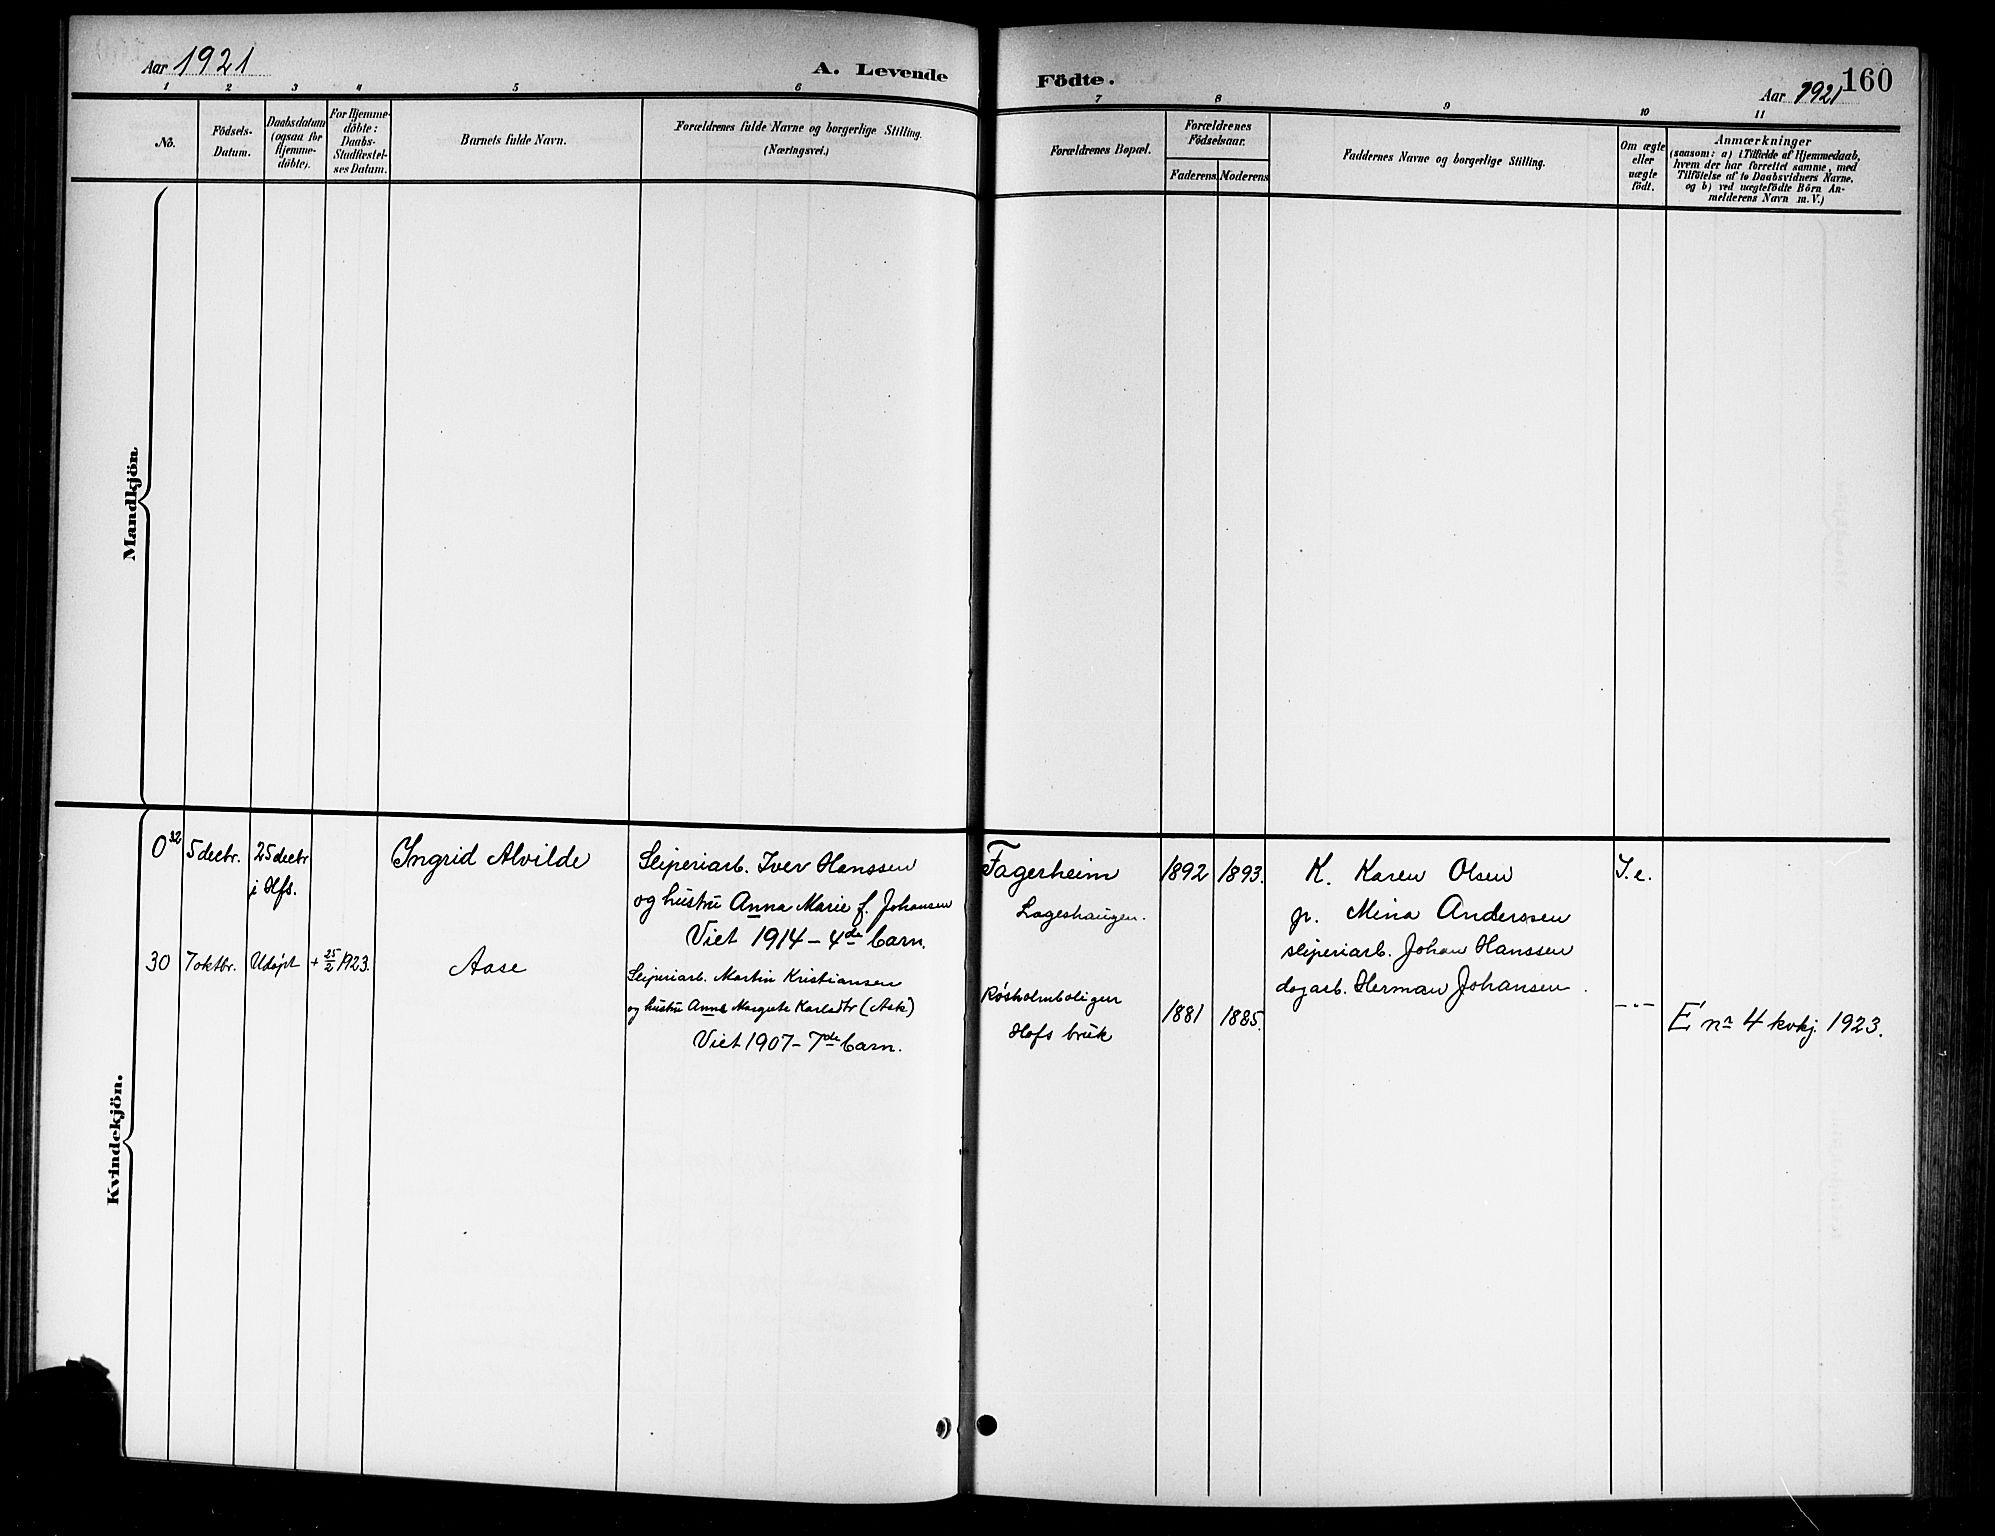 Aar 1921
A. Levende
Födte.
Aar 1921
160
1 2 3 4 5 6 7 8 9 10 11
No.
Födsels-
Datum.
Daabsdatum
(ogsaa for
Hjemme-
döbte).
For Hjemme-
döbte:
Daabs-
Stadfæstel-
ses Datum.
Barnets fulde Navn.
Forældrenes fulde Navne og borgerlige Stilling.
(Næringsvei.)
Forældrenes Bopæl.
Forældrenes
Födselsaar.
Faderens. Moderens.
Faddernes Navne og borgerlige Stilling.
Om ægte
eller
uægte
födt.
Anmærkninger
(saasom: a) i Tilfælde af Hjemmedaab,
hvem der har forrettet samme, med
Tilföielse af to Daabsvidners Navne,
og b) ved uægtefödte Börn An-
melderens Navn m. V.)
Mandkjön
Kvindekjön.
0 32
5 decbr.
25 decbr
i Hfs.
Ingrid Alvilde
Sliperiarb. Iver Hanssen
og hustru Anna Marie f. Johansen
Viet 1914 - 4de barn.
Fagerheim
Lageshaugen.
1892
1893.
K. Karen Olsen
p. Mina Anderssen
sliperiarb. Johan Hanssen
dagarb. Herman Johansen.
I. e.
30
7 oktbr.
Udøpt
+ 25/2 1923.
Aase
Sliperiarb. Martin Kristiansen
og hustru Anna Margrete Karlsdtr (Ask)
Viet 1907 - 7de barn.
Røsholmboligen
Hofs bruk
1881
1885.
- " -
E nr 4 kvkj. 1923.